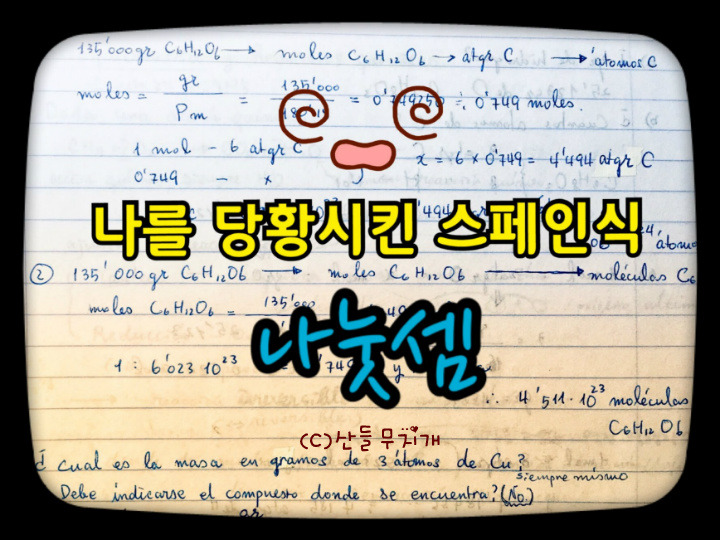 135'000gr C6H12O6 → moles C6H12O6 → atgr C → átomos C
moles = gr / Pm = 135'000 / = 0'749250 ∴ 0'749 moles.
1 mol - 6 atgr C
0'749 - x
x = 6 x 0'749 = 4'494 atgr C
나를 당황시킨 스페인식
② 135'000gr C6H12O6 → moles C6H12O6 → moléculas C6
moles C6H12O6 = 135'000
나눗셈
1 : 6'023 10²³ = 0'749 y
∴ 4'511·10²³ moléculas
C6H12O6
(C)산들무지개
¿ Cual es la masa en gramos de 3 átomos de Cu?
siempre mismo
Debe indicarse el compuesto donde se encuentra? (No)
gr